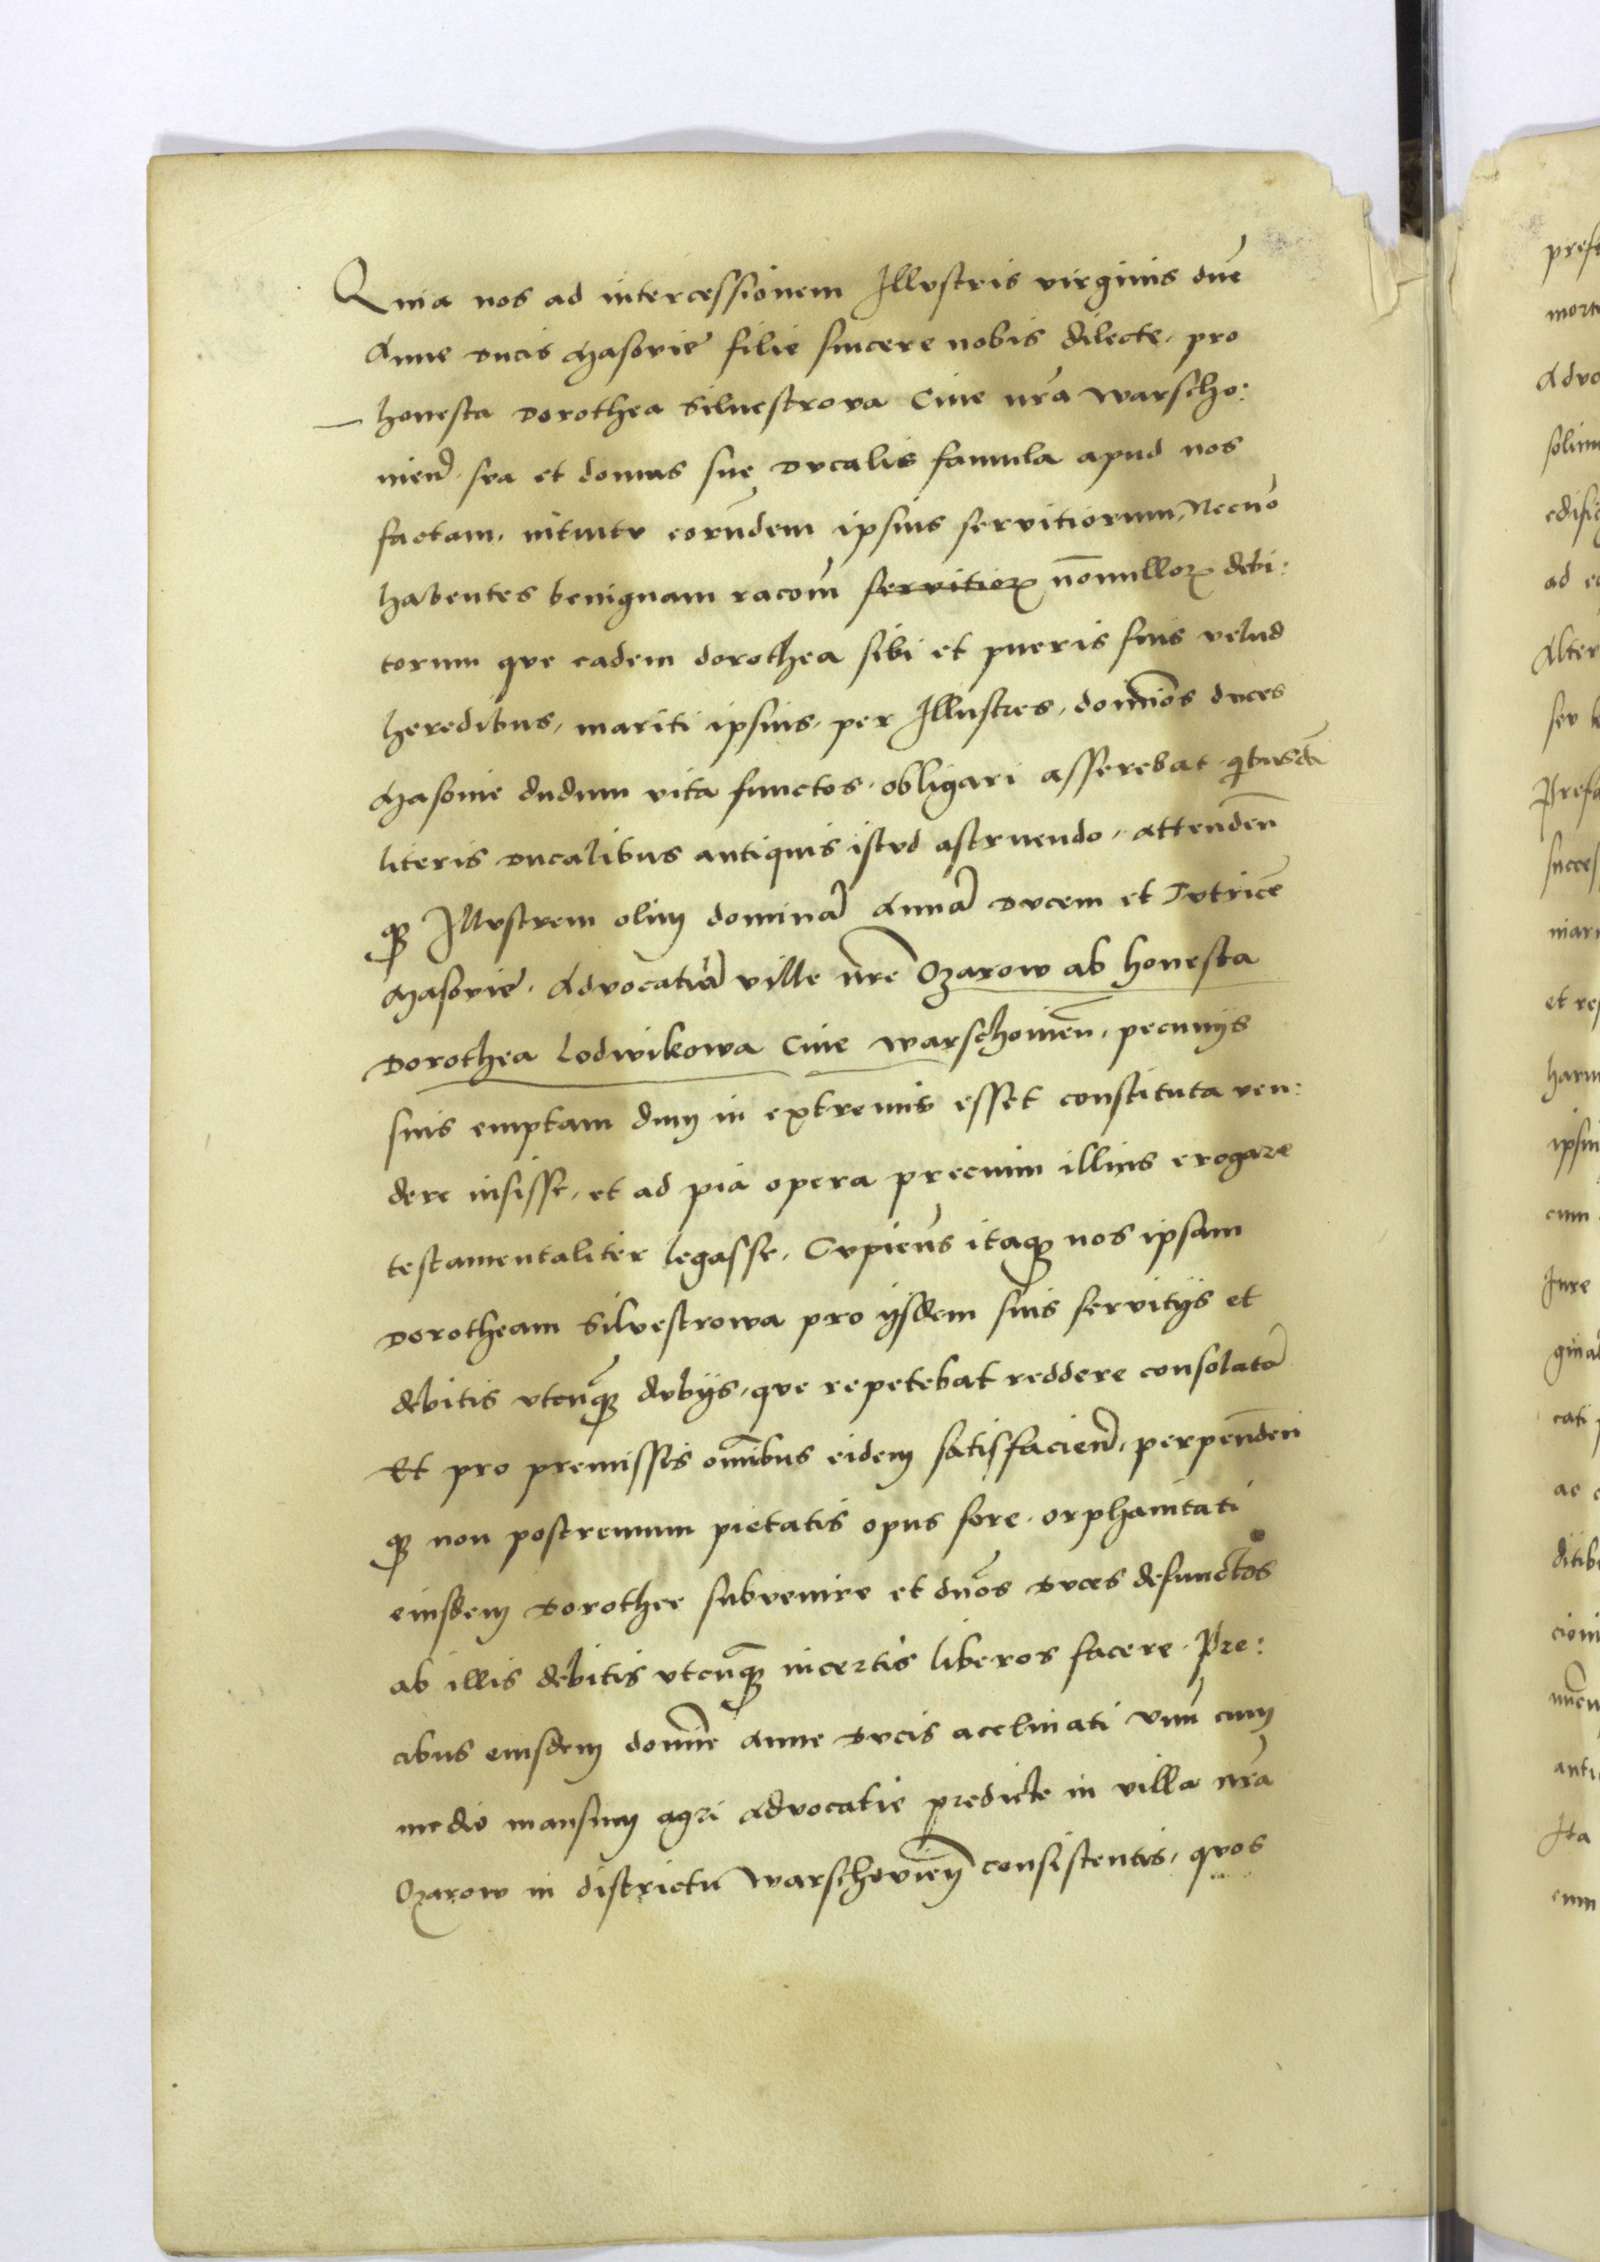 Quia nos ad intercessionem Illustris virginis dn̄e
Anne ducis Masovie filie sincere nobis dilecte, pro
honesta Dorothea Silvestrova Cive nr̄a warscho:
nien̄ sea et domus sue Ducalis famula apud nos
factam, intuitu eorūdem ipsius servitiorum, Necnō
habentes benignam racom̄ servitior̄ nōnullor̄ debi:
torum que eadem dorothea sibi et pueris suis velud
heredibus, mariti ipsius, per Illustres, domīos duces
Masovie dudum vita functos, obligari asserebat, qbusdā
literis Ducalibus antiquis istud astruendo, attendeñ
qȝ Illustrem olim dominā Annā Ducem et Tutricē
Masovie, Advocatiā ville nr̄e Ozarow ab honesta
Dorothea Lodwikowa Cive warschovien̄, pecunijs
suis emptam dum in extremis esset constituta ven:
dere iusisse, et ad pia opera precium illius erogare
testamentaliter legasse, Cupien̄s itaqȝ nos ipsam
Dorotheam Silvestrowa pro ijsdem suis servitijs et
debitis utcūqȝ dubijs, que repetebat reddere consolatā
Et pro premissis om̄ibus eidem satisfacien̄, perpendeñ
qȝ non postremum pietatis opus fore, orphanitati
eiusdem Dorothee subvenire et dn̄os Duces defunctos
ab illis debitis utcūqȝ incertis liberos facere, Pre:
cibus eiusdem domīe Anne Ducis acclinati Unū cum
medio mansum agri Advocatie predicte in villa nr̄a
Ozarow in districtu warschovien̄ consistentis, quos
prefa
morte
Advo
edific
ad e
Alter
seu
Prefa
succes
et re
ipsiu
cum
Jure
cati
ac
ditib
anti
Ita